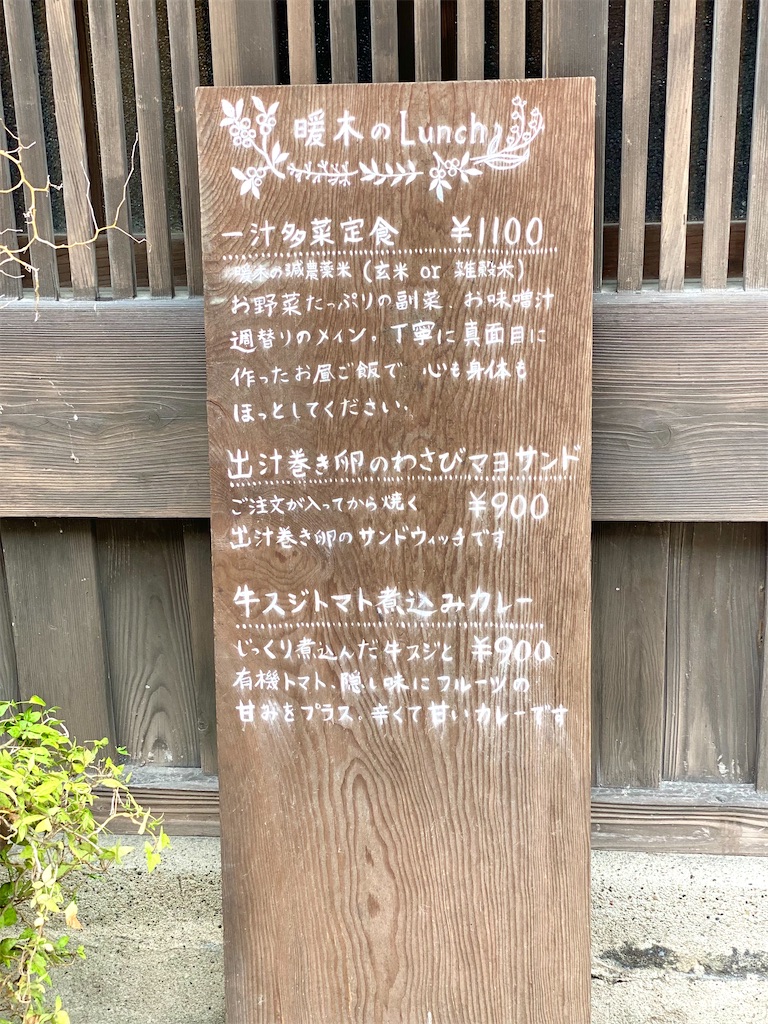 暖木のLunch
一汁多菜定食 ¥1100
暖木の減農薬米（玄米 or 雑穀米）
お野菜たっぷりの副菜、お味噌汁
週替りのメイン。丁寧に真面目に
作ったお昼ご飯で 心も身体も
ほっとしてください。
出汁巻き卵のわさびマヨサンド
ご注文が入ってから焼く ¥900
出汁巻き卵のサンドウィッチです
牛スジトマト煮込みカレー
じっくり煮込んだ牛スジと ¥900
有機トマト、隠し味にフルーツの
甘みをプラス。辛くて甘いカレーです